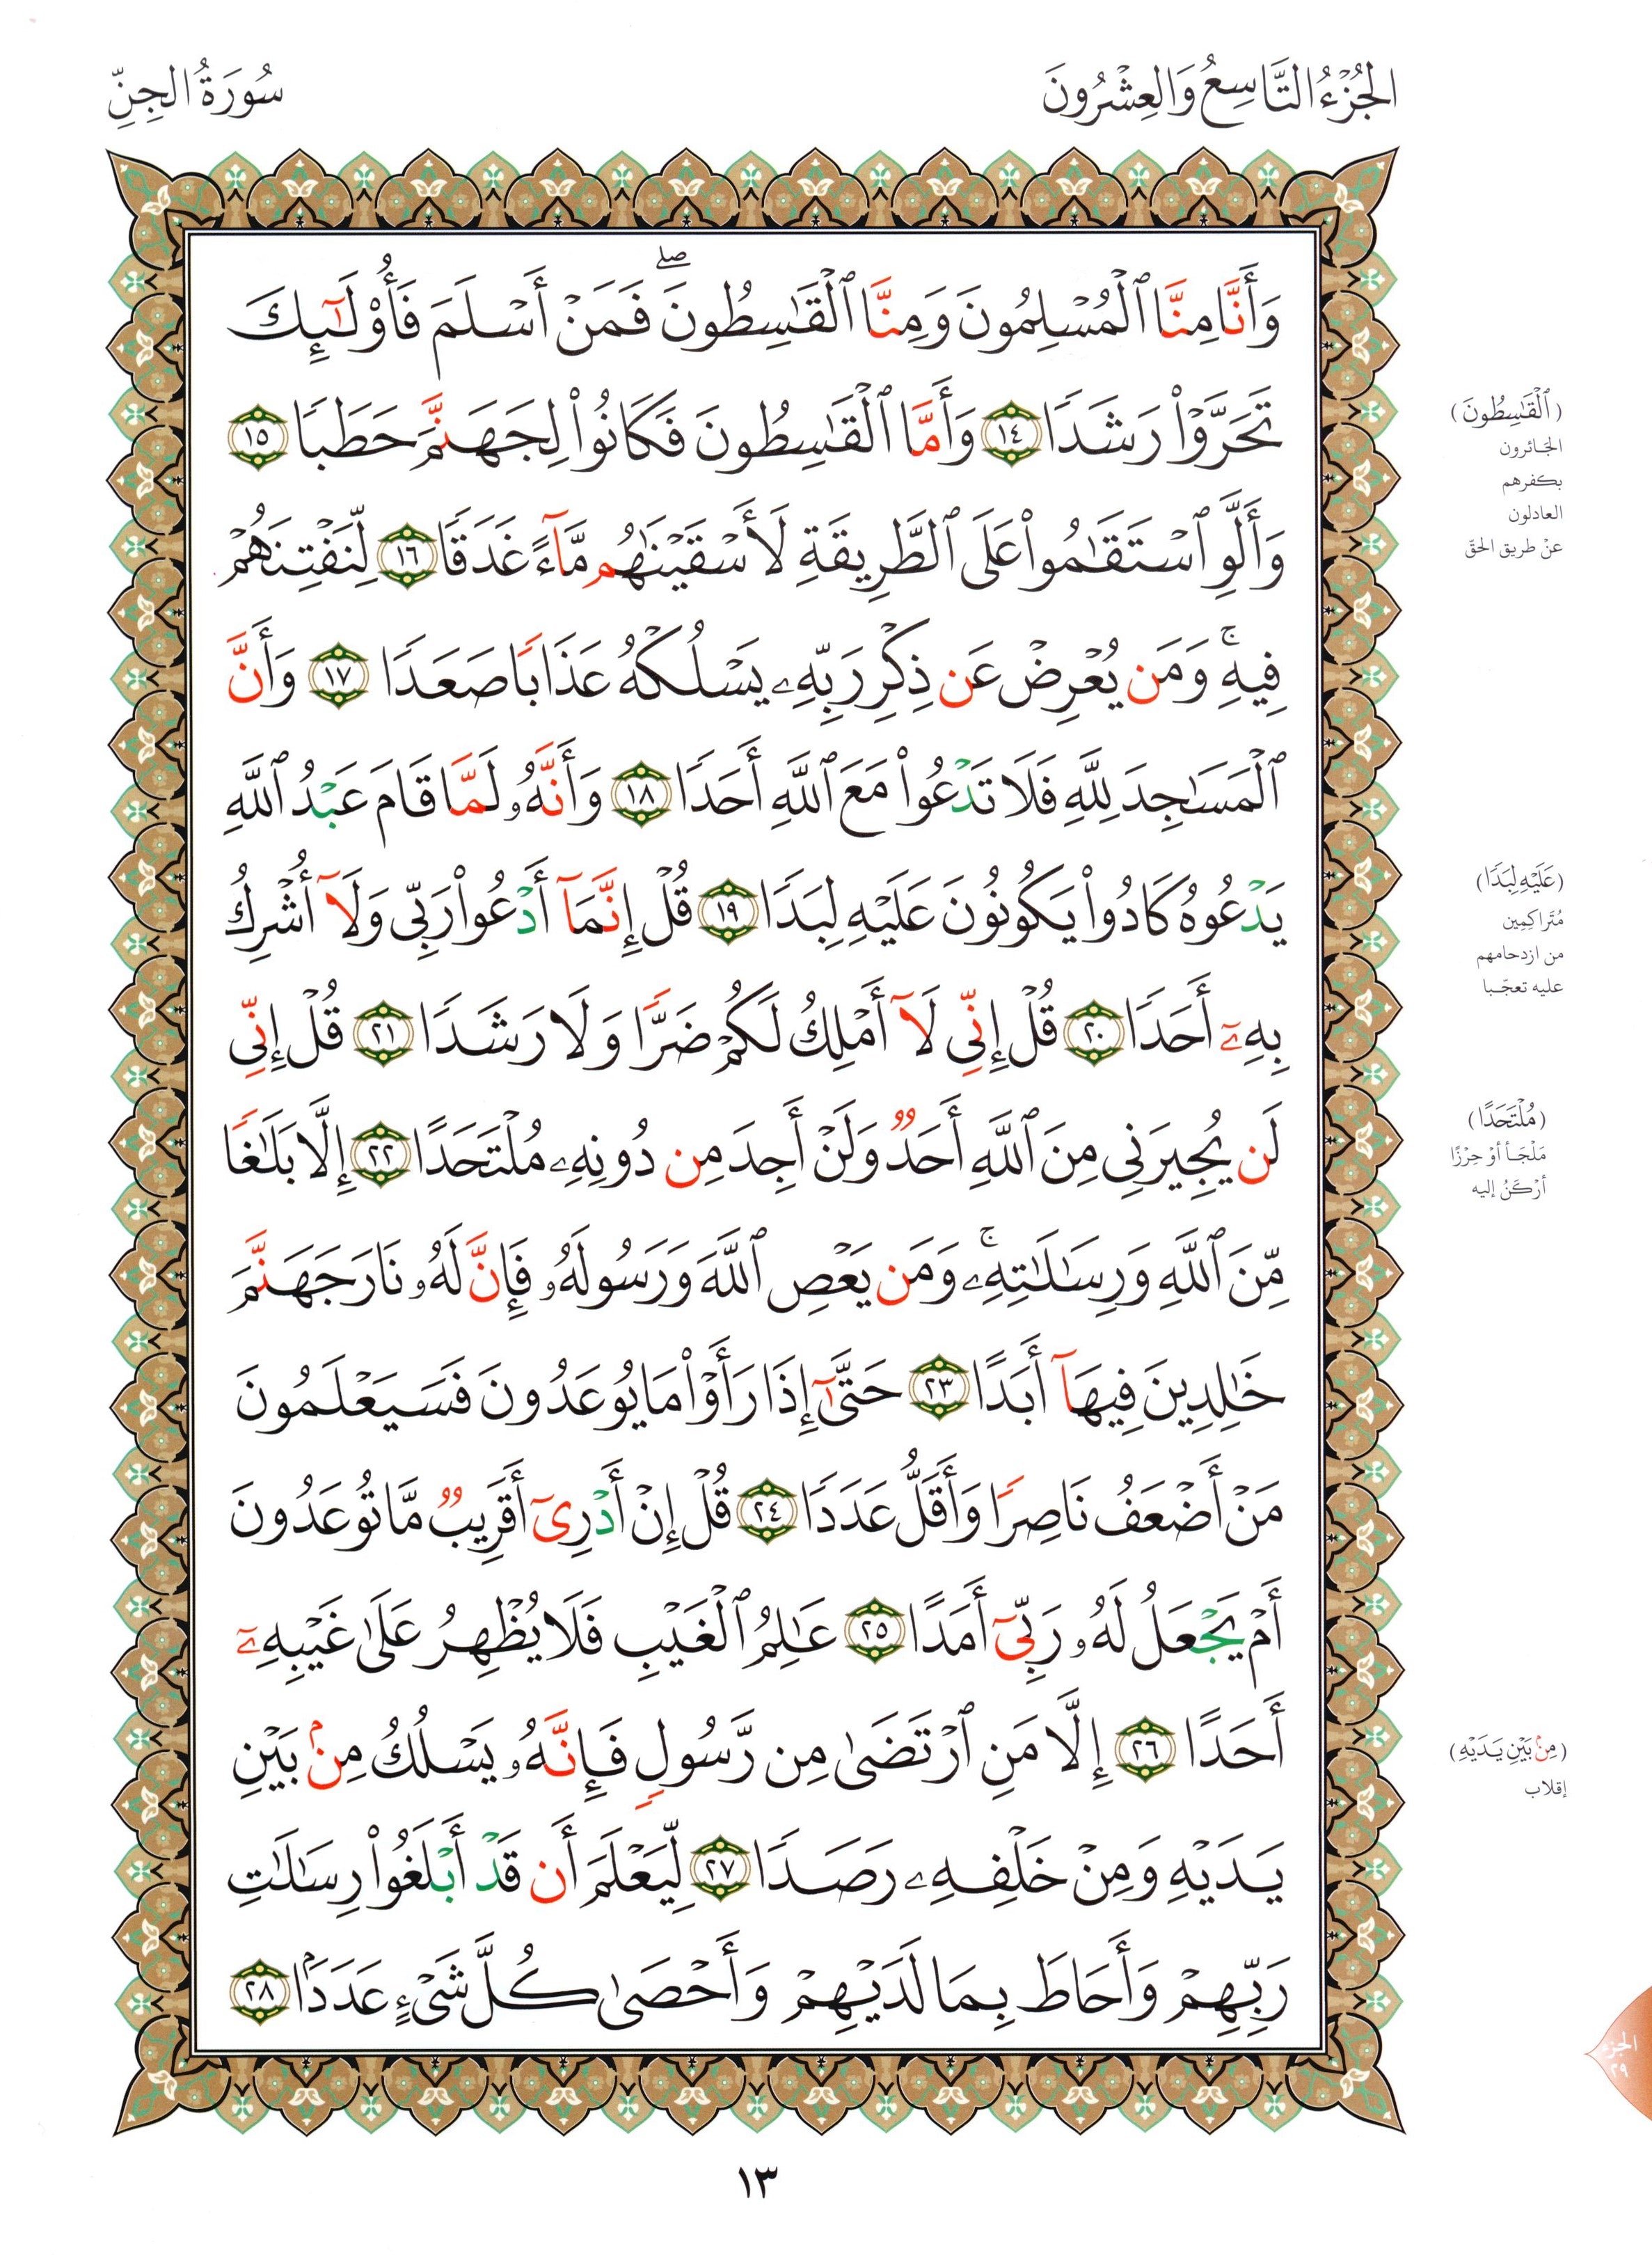 الجُزْءُ التَّاسِعُ وَالعِشْرُونَ
سُورَةُ الجِنِّ
وَأَنَّا مِنَّا ٱلْمُسْلِمُونَ وَمِنَّا ٱلْقَٰسِطُونَ ۖ فَمَنْ أَسْلَمَ فَأُو۟لَٰٓئِكَ
تَحَرَّوْا۟ رَشَدًا ١٤ وَأَمَّا ٱلْقَٰسِطُونَ فَكَانُوا۟ لِجَهَنَّمَ حَطَبًا ١٥
وَأَلَّوِ ٱسْتَقَٰمُوا۟ عَلَى ٱلطَّرِيقَةِ لَأَسْقَيْنَٰهُم مَّآءً غَدَقًا ١٦ لِّنَفْتِنَهُمْ
فِيهِ ۚ وَمَن يُعْرِضْ عَن ذِكْرِ رَبِّهِۦ يَسْلُكْهُ عَذَابًا صَعَدًا ١٧ وَأَنَّ
ٱلْمَسَٰجِدَ لِلَّهِ فَلَا تَدْعُوا۟ مَعَ ٱللَّهِ أَحَدًا ١٨ وَأَنَّهُۥ لَمَّا قَامَ عَبْدُ ٱللَّهِ
يَدْعُوهُ كَادُوا۟ يَكُونُونَ عَلَيْهِ لِبَدًا ١٩ قُلْ إِنَّمَآ أَدْعُوا۟ رَبِّى وَلَآ أُشْرِكُ
بِهِۦٓ أَحَدًا ٢٠ قُلْ إِنِّى لَآ أَمْلِكُ لَكُمْ ضَرًّا وَلَا رَشَدًا ٢١ قُلْ إِنِّى
لَن يُجِيرَنِى مِنَ ٱللَّهِ أَحَدٌ وَلَنْ أَجِدَ مِن دُونِهِۦ مُلْتَحَدًا ٢٢ إِلَّا بَلَٰغًا
مِّنَ ٱللَّهِ وَرِسَٰلَٰتِهِۦ ۚ وَمَن يَعْصِ ٱللَّهَ وَرَسُولَهُۥ فَإِنَّ لَهُۥ نَارَ جَهَنَّمَ
خَٰلِدِينَ فِيهَآ أَبَدًا ٢٣ حَتَّىٰٓ إِذَا رَأَوْا۟ مَا يُوعَدُونَ فَسَيَعْلَمُونَ
مَنْ أَضْعَفُ نَاصِرًا وَأَقَلُّ عَدَدًا ٢٤ قُلْ إِنْ أَدْرِىٓ أَقَرِيبٌ مَّا تُوعَدُونَ
أَمْ يَجْعَلُ لَهُۥ رَبِّىٓ أَمَدًا ٢٥ عَٰلِمُ ٱلْغَيْبِ فَلَا يُظْهِرُ عَلَىٰ غَيْبِهِۦٓ
أَحَدًا ٢٦ إِلَّا مَنِ ٱرْتَضَىٰ مِن رَّسُولٍ فَإِنَّهُۥ يَسْلُكُ مِنۢ بَيْنِ
يَدَيْهِ وَمِنْ خَلْفِهِۦ رَصَدًا ٢٧ لِّيَعْلَمَ أَن قَدْ أَبْلَغُوا۟ رِسَٰلَٰتِ
رَبِّهِمْ وَأَحَاطَ بِمَا لَدَيْهِمْ وَأَحْصَىٰ كُلَّ شَىْءٍ عَدَدًۢا ٢٨
(ٱلْقَٰسِطُونَ)
الجائرون
بكفرهم
العادلون
عنْ طريق الحقّ
(عَلَيْهِ لِبَدًا)
مُتَراكِمِين
من ازدحامهم
عليه تعجّبا
(مُلْتَحَدًا)
مَلْجَأً أوْ حِرْزًا
أرْكَنُ إليه
(مِنۢ بَيْنِ يَدَيْهِ)
إقلاب
الجزء
٢٩
١٣